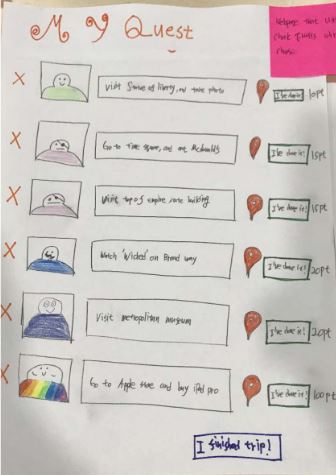 My Quest
Helper that
X
Visit Statue of liberty, and take photo
I've done it!
10pt
X
Go to Time square, and eat McDonald's
I've done it!
15pt
X
Visit top of empire state building
I've done it!
15pt
X
Watch 'Wicked' on Broad way
I've done it!
20pt
X
Visit metropolitan museum
I've done it!
20pt
X
Go to Apple store and buy iPad pro
I've done it!
100pt
I finished trip!